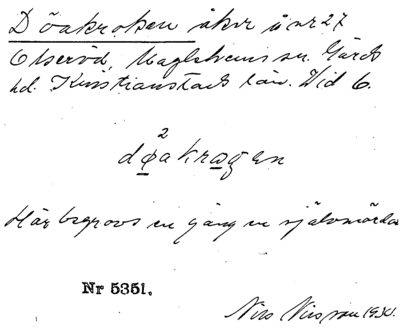 Döakroken åker å nr 27
Olseröd, Maglehems sn. Gärds
hd. Kristianstads län. Vid 6.
2
døakrǫgen
Här begrovs en gång en självmördare
Nr 5351.
Nils Nilsson 1930.